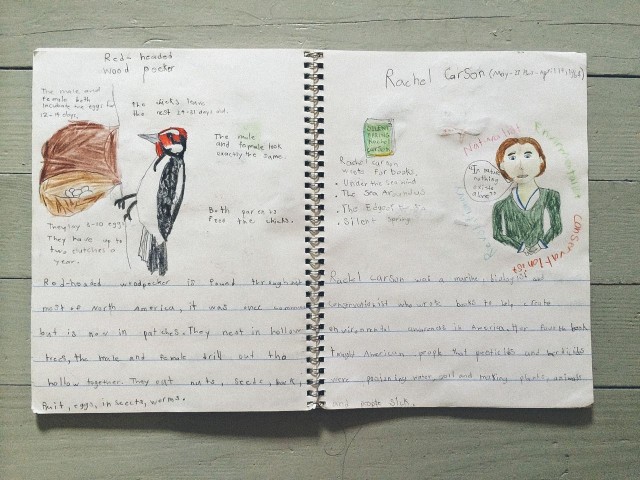 Red-headed
wood pecker
The male and
female both
incubate the eggs for
12-14 days.
the chicks leave
the nest 24-31 days old.
The male
and female look
exactly the same.
Both parents
feed the chicks.
They lay
They have up to
two clutches a
year.
Red-headed woodpecker is found throughout
most of North America, it was once common
but is now in patches. They nest in hollow
trees, the male and female drill out the
hollow together. They eat nuts, seeds, bark,
fruit, eggs, insects, worms.
Rachel Carson
SILENT
SPRING
Rachel
Carson
Rachel Carson
wrote four books.
• Under the Sea wind
• The Sea Around us
• The Edge of the Sea
• Silent Spring
Naturalist
Environmentalist
conservationist
"In nature
nothing
exists
alone"
Rachel Carson was a marine biologist and
conservationist who wrote books to help create
environmental awareness in America. Her book
taught American people that pesticides and herbicides
were poisoning water, soil and making plants, animals
and people sick.